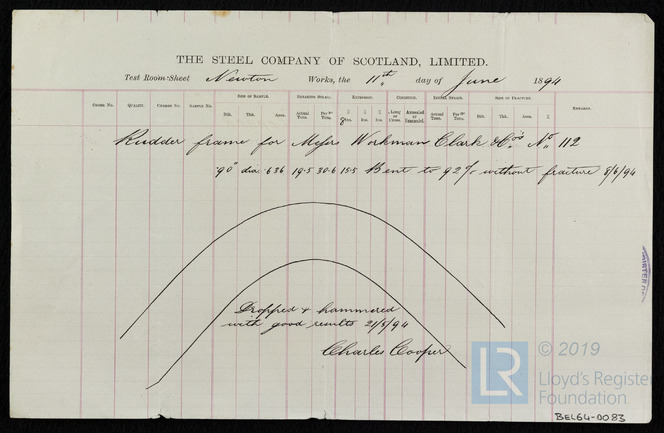 THE STEEL COMPANY OF SCOTLAND, LIMITED.
Test Room Sheet Newton Works, the 11th day of June 1894
SIZE OF SAMPLE. BREAKING STRAIN. EXTENSION. CONDITION. ELASTIC STRAIN. SIZE OF FRACTURE.
ORDER NO. QUALITY. CHARGE NO. SAMPLE NO. Bth. Thk. Area. Actual Tons. Per □" Tons. Ins. Ins. Long or Cross. Annealed or Unanneald. Actual Tons. Per □" Tons. Bth. Thk. Area. % REMARKS.
Rudder frame for Messrs Workman Clark & Co's No 112
.90" dia .636 19.5 30.6 15.5 Bent to 92° without fracture 8/6/94
Dropped & hammered
with good results 21/5/94
Charles Cooper
LR © 2019
Lloyd's Register
Foundation
BEL64-0083